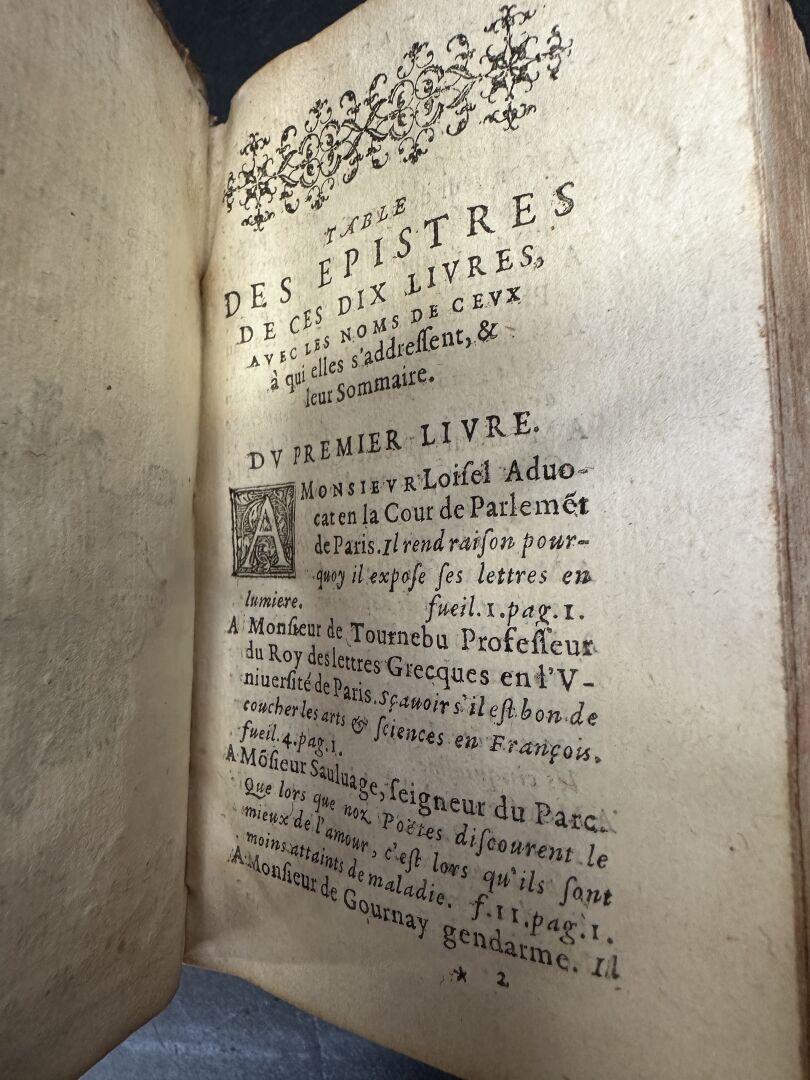 TABLE
DES EPISTRES
DE CES DIX LIVRES,
AVEC LES NOMS DE CEVX
à qui elles s'addreſſent, &
leur Sommaire.
DV PREMIER LIVRE.
A MONSIEVR Loiſel Aduo-
cat en la Cour de Parlemẽt
de Paris. Il rend raiſon pour-
quoy il expoſe ſes lettres en
lumiere. fueil. 1. pag. 1.
A Monſieur de Tournebu Profeſſeur
du Roy des lettres Grecques en l'V-
niuerſité de Paris. Sçauoir s'il eſt bon de
coucher les arts & ſciences en François.
fueil. 4. pag. 1.
A Mõſieur Sauluage, ſeigneur du Parc.
Que lors que noz Poëtes diſcourent le
mieux de l'amour, c'eſt lors qu'ils ſont
moins attaints de maladie. f. 11. pag. 1.
A Monſieur de Gournay gendarme. Il
* 2